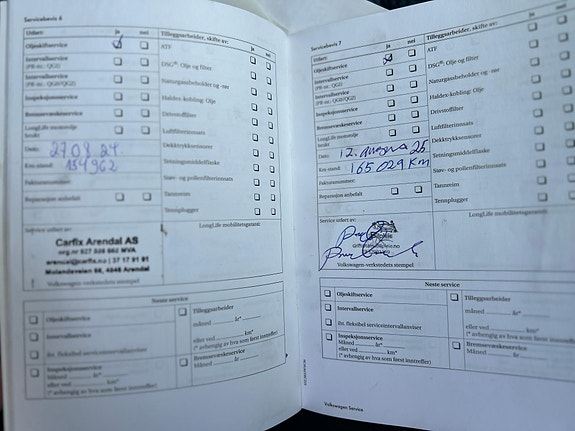 Servicebevis 6
Utført: ja nei
Oljeskiftservice
Intervallservice
(PR-nr.: QG1)
Intervallservice
(PR-nr.: QG0/QG2)
Inspeksjonsservice
Bremsevæskeservice
LongLife motorolje
brukt
Dato: 27 08 24
Km-stand: 154 962
Fakturanummer:
Reparasjon anbefalt
Tilleggsarbeider, skifte av: ja nei
ATF
DSG®: Olje og filter
Naturgassbeholder og -rør
Haldex-kobling: Olje
Drivstoffilter
Luftfilterinnsats
Dekktrykksensorer
Tetningsmiddelflaske
Støv- og pollenfilterinnsats
Tannreim
Tennplugger
Service utført av:
LongLife mobilitetsgaranti:
Carfix Arendal AS
Volkswagen-verkstedets stempel
Neste service
Oljeskiftservice
Intervallservice
iht. fleksibel serviceintervallanviser
Inspeksjonsservice
Måned år*
eller ved km*
(* avhengig av hva som først inntreffer)
Tilleggsarbeider
måned år*
eller ved km*
(* avhengig av hva som først inntreffer)
Bremsevæskeservice
Måned år
Servicebevis 7
Utført: ja nei
Oljeskiftservice
Intervallservice
(PR-nr.: QG1)
Intervallservice
(PR-nr.: QG0/QG2)
Inspeksjonsservice
Bremsevæskeservice
LongLife motorolje
brukt
Dato: 12. 25
Km-stand: 165 029 Km
Fakturanummer:
Reparasjon anbefalt
Tilleggsarbeider, skifte av:
ATF
DSG®: Olje og filter
Naturgassbeholder og -rør
Haldex-kobling: Olje
Drivstoffilter
Luftfilterinnsats
Dekktrykksensorer
Tetningsmiddelflaske
Støv- og pollenfilterinnsats
Tannreim
Tennplugger
Service utført av:
LongLife mobilitetsgaranti:
Volkswagen-verkstedets stempel
Neste service
Oljeskiftservice
Intervallservice
iht. fleksibel serviceintervallanviser
Inspeksjonsservice
Måned år*
eller ved km*
(* avhengig av hva som først inntreffer)
Tilleggsarbeider
måned
eller ved
(* avhengig av hva som
Bremsevæskeservice
Måned
Volkswagen Service